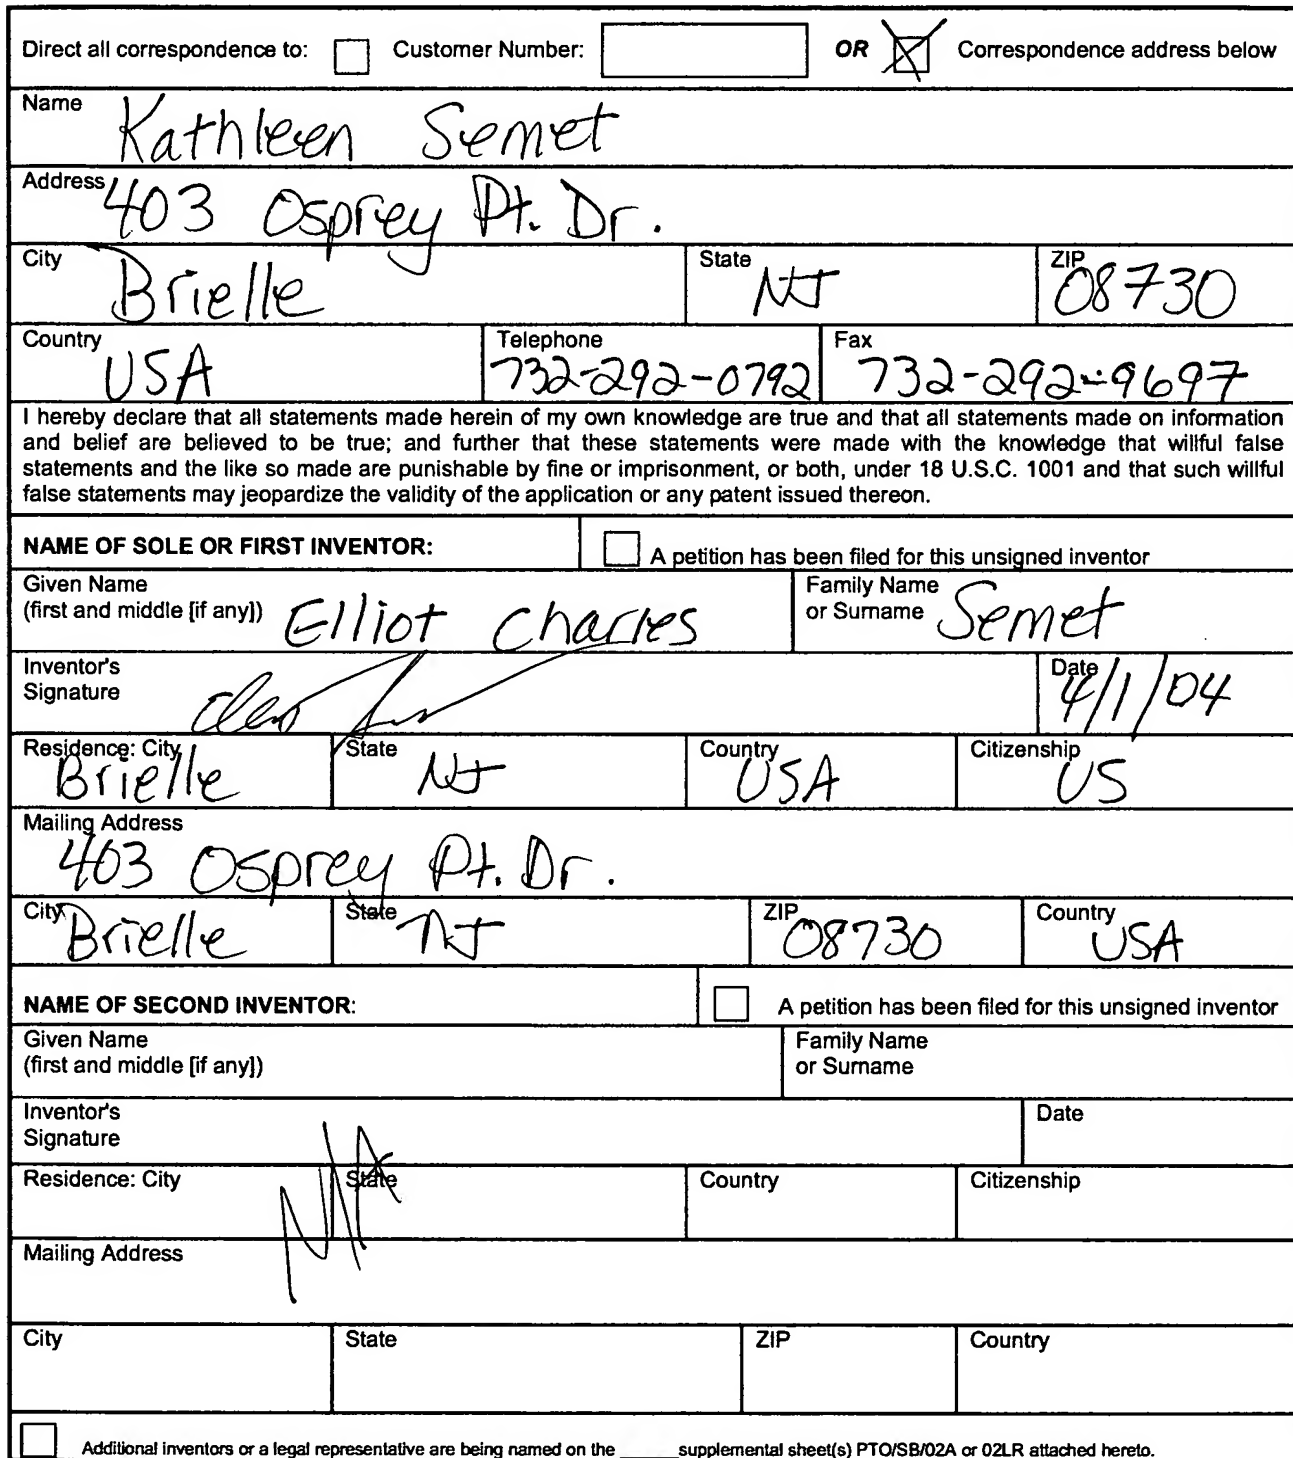 Direct all correspondence to: Customer Number: OR Correspondence address below
Name
Kathleen Semet
Address
403 Osprey Pt. Dr.
City State ZIP
Brielle NJ 08730
Country Telephone Fax
USA 732-292-0792 732-292-9697
I hereby declare that all statements made herein of my own knowledge are true and that all statements made on information
and belief are believed to be true; and further that these statements were made with the knowledge that willful false
statements and the like so made are punishable by fine or imprisonment, or both, under 18 U.S.C. 1001 and that such willful
false statements may jeopardize the validity of the application or any patent issued thereon.
NAME OF SOLE OR FIRST INVENTOR: A petition has been filed for this unsigned inventor
Given Name Family Name
(first and middle [if any]) Elliot Charles or Surname Semet
Inventor's Date
Signature 4/1/04
Residence: City State Country Citizenship
Brielle NJ USA US
Mailing Address
403 Osprey Pt. Dr.
City State ZIP Country
Brielle NJ 08730 USA
NAME OF SECOND INVENTOR: A petition has been filed for this unsigned inventor
Given Name Family Name
(first and middle [if any]) or Surname
Inventor's Date
Signature
N/A
Residence: City State Country Citizenship
Mailing Address
City State ZIP Country
Additional inventors or a legal representative are being named on the _____ supplemental sheet(s) PTO/SB/02A or 02LR attached hereto.